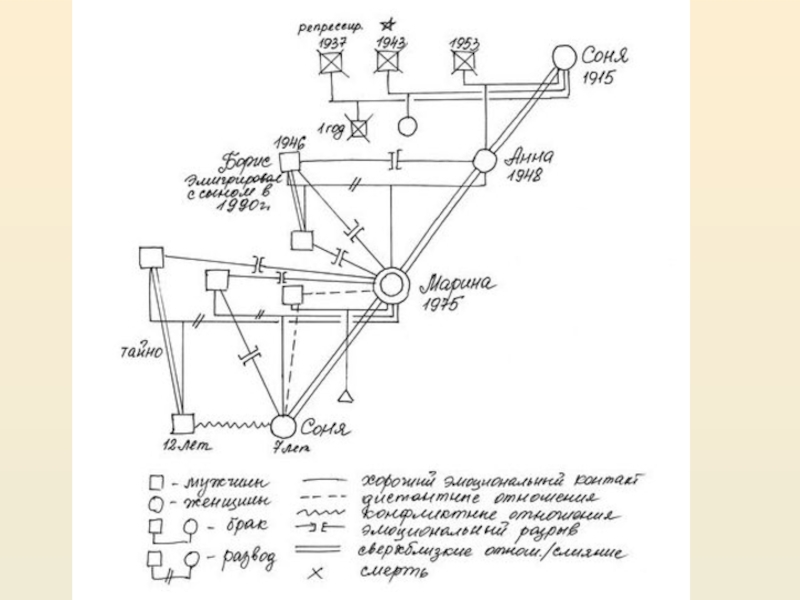 репрессир.
1937 1943 1953
Соня
1915
1 год
1946
Борис
Эмигрировал
с сыном в
1990г.
Анна
1948
Марина
1975
тайно
12 лет
7 лет
Соня
- мужчины
- женщины
- брак
- развод
хороший эмоциональный контакт
дистантные отношения
конфликтные отношения
эмоциональный разрыв
сверхблизкие отнош./слияние
смерть